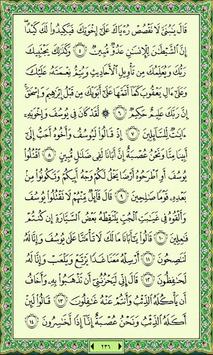 قَالَ يَـٰبُنَىَّ لَا تَقْصُصْ رُءْيَاكَ عَلَىٰٓ إِخْوَتِكَ فَيَكِيدُوا۟ لَكَ كَيْدًا ۖ
إِنَّ ٱلشَّيْطَـٰنَ لِلْإِنسَـٰنِ عَدُوٌّ مُّبِينٌ ﴿٥﴾ وَكَذَٰلِكَ يَجْتَبِيكَ
رَبُّكَ وَيُعَلِّمُكَ مِن تَأْوِيلِ ٱلْأَحَادِيثِ وَيُتِمُّ نِعْمَتَهُۥ عَلَيْكَ
وَعَلَىٰٓ ءَالِ يَعْقُوبَ كَمَآ أَتَمَّهَا عَلَىٰٓ أَبَوَيْكَ مِن قَبْلُ إِبْرَٰهِيمَ وَإِسْحَـٰقَ ۚ
إِنَّ رَبَّكَ عَلِيمٌ حَكِيمٌ ﴿٦﴾ ۞ لَّقَدْ كَانَ فِى يُوسُفَ وَإِخْوَتِهِۦٓ
ءَايَـٰتٌ لِّلسَّآئِلِينَ ﴿٧﴾ إِذْ قَالُوا۟ لَيُوسُفُ وَأَخُوهُ أَحَبُّ إِلَىٰٓ
أَبِينَا مِنَّا وَنَحْنُ عُصْبَةٌ إِنَّ أَبَانَا لَفِى ضَلَـٰلٍ مُّبِينٍ ﴿٨﴾ ٱقْتُلُوا۟
يُوسُفَ أَوِ ٱطْرَحُوهُ أَرْضًا يَخْلُ لَكُمْ وَجْهُ أَبِيكُمْ وَتَكُونُوا۟ مِنۢ
بَعْدِهِۦ قَوْمًا صَـٰلِحِينَ ﴿٩﴾ قَالَ قَآئِلٌ مِّنْهُمْ لَا تَقْتُلُوا۟ يُوسُفَ
وَأَلْقُوهُ فِى غَيَـٰبَتِ ٱلْجُبِّ يَلْتَقِطْهُ بَعْضُ ٱلسَّيَّارَةِ إِن كُنتُمْ
فَـٰعِلِينَ ﴿١٠﴾ قَالُوا۟ يَـٰٓأَبَانَا مَا لَكَ لَا تَأْمَ۫نَّا عَلَىٰ يُوسُفَ وَإِنَّا لَهُۥ
لَنَـٰصِحُونَ ﴿١١﴾ أَرْسِلْهُ مَعَنَا غَدًا يَرْتَعْ وَيَلْعَبْ وَإِنَّا لَهُۥ
لَحَـٰفِظُونَ ﴿١٢﴾ قَالَ إِنِّى لَيَحْزُنُنِىٓ أَن تَذْهَبُوا۟ بِهِۦ وَأَخَافُ
أَن يَأْكُلَهُ ٱلذِّئْبُ وَأَنتُمْ عَنْهُ غَـٰفِلُونَ ﴿١٣﴾ قَالُوا۟ لَئِنْ
أَكَلَهُ ٱلذِّئْبُ وَنَحْنُ عُصْبَةٌ إِنَّآ إِذًا لَّخَـٰسِرُونَ ﴿١٤﴾
٢٣٦